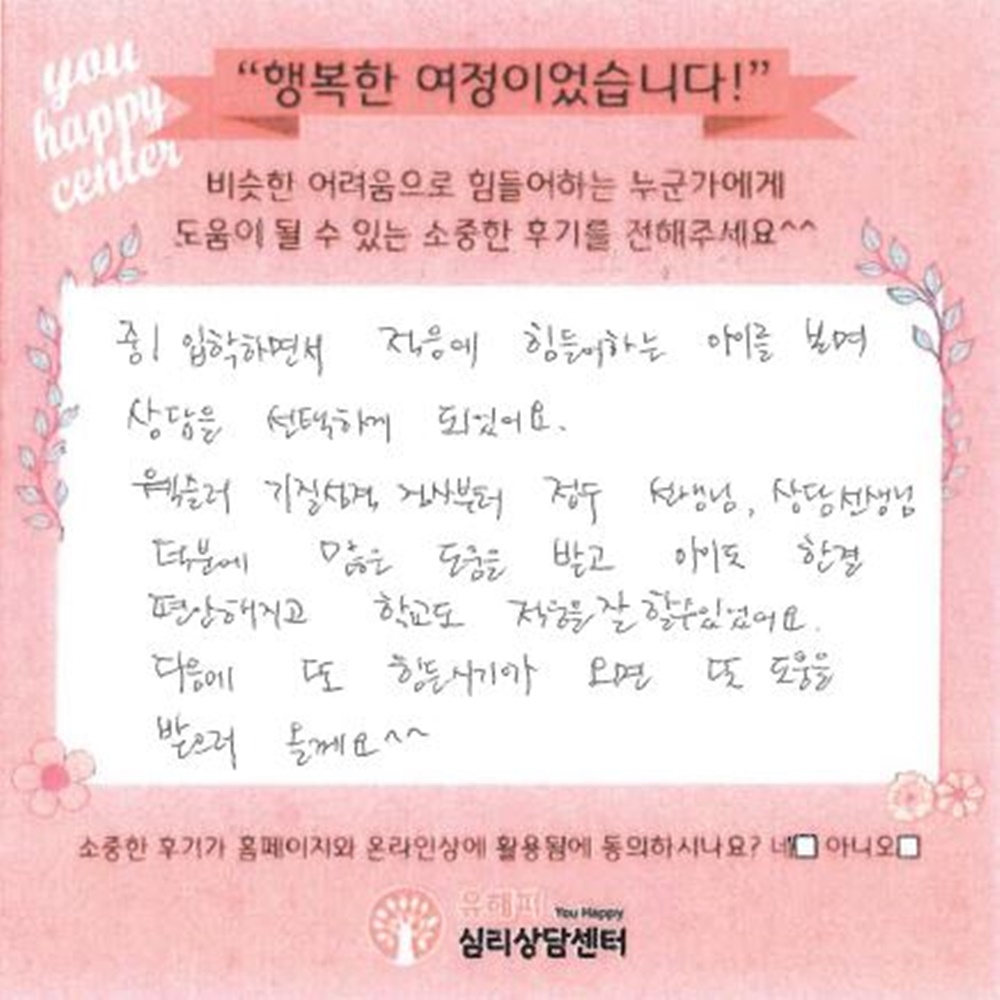 you
happy
center
“행복한 여정이었습니다!”
비슷한 어려움으로 힘들어하는 누군가에게
도움이 될 수 있는 소중한 후기를 전해주세요^^
중1 입학하면서 적응에 힘들어하는 아이를 보며
상담을 선택하게 되었어요.
웩슬러 기질성격 검사부터 정두 선생님, 상담선생님
덕분에 많은 도움을 받고 아이도 한결
편안해지고 학교도 적응을 잘 할수있었어요.
다음에 또 힘든시기가 오면 또 도움을
받으러 올께요^^
소중한 후기가 홈페이지와 온라인상에 활용됨에 동의하시나요? 네 아니오
유해피 You Happy
심리상담센터